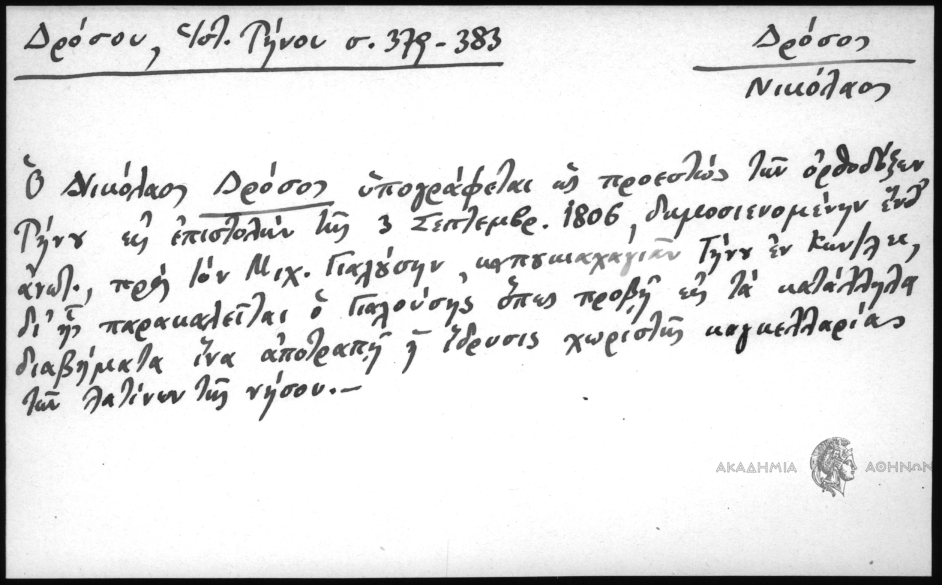 Δρόσου, Ἱστ. Τήνου σ. 379-383
Δρόσος
Νικόλαος
Ὁ Νικόλαος Δρόσος ὑπογράφεται ὡς προεστὼς τῶν ὀρθοδόξων
Τήνου εἰς ἐπιστολὴν τῆς 3 Σεπτεμβρ. 1806, δημοσιευομένην ἐνθ'
ἀνωτ., πρὸς τὸν Μιχ. Γιαλούσην, Τήνου ἐν Κων/λει,
δι' ἧς παρακαλεῖται ὁ Γιαλούσης ὅπως προβῇ εἰς τὰ κατάλληλα
διαβήματα ἵνα ἀποτραπῇ ἡ ἵδρυσις χωριστῆς καγκελλαρίας
τῶν Λατίνων τῆς νήσου.—
ΑΚΑΔΗΜΙΑ ΑΘΗΝΩΝ